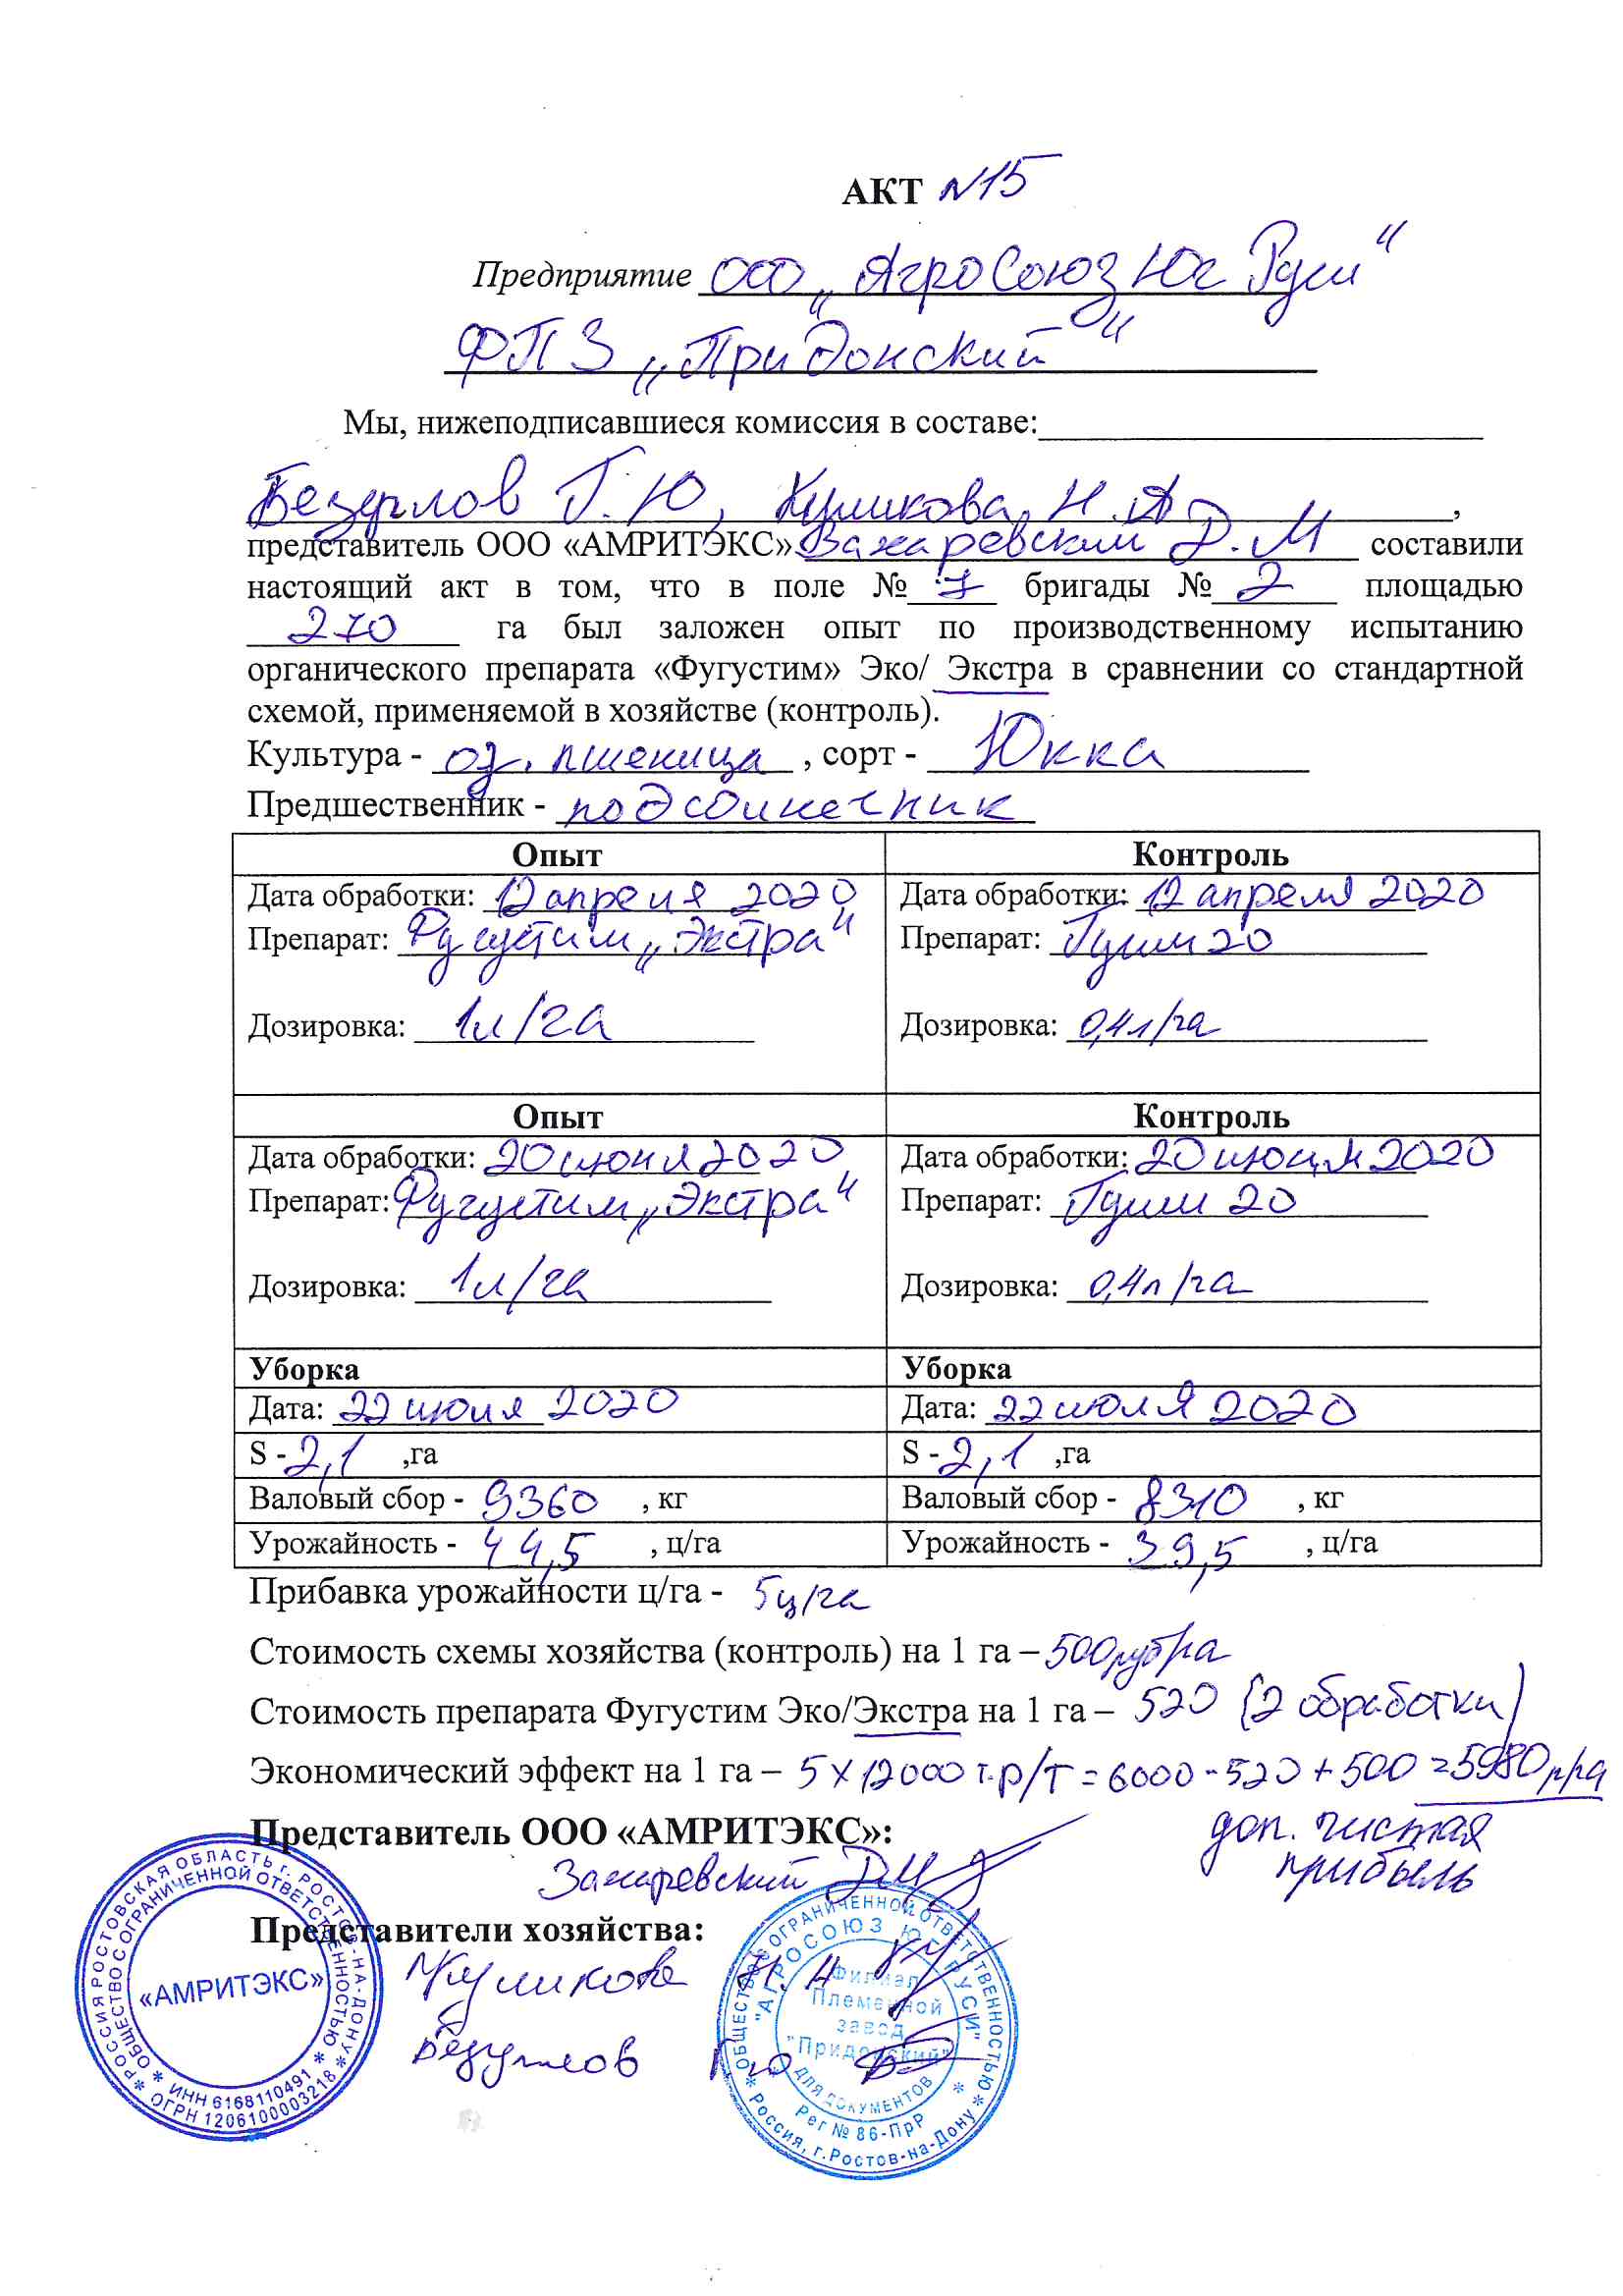 АКТ №15
Предприятие ООО „АгроСоюз Юг Руси“
ФПЗ „Придонский“
Мы, нижеподписавшиеся комиссия в составе:
Безуглов Г.Ю, Куликова Н.А,
представитель ООО «АМРИТЭКС» Захаревский Д.М составили
настоящий акт в том, что в поле № 7 бригады № 2 площадью
270 га был заложен опыт по производственному испытанию
органического препарата «Фугустим» Эко/ Экстра в сравнении со стандартной
схемой, применяемой в хозяйстве (контроль).
Культура - оз. пшеница, сорт - Юкка
Предшественник - подсолнечник
Опыт Контроль
Дата обработки: 12 апреля 2020 Дата обработки: 12 апреля 2020
Препарат: Фугустим „Экстра“ Препарат: Гуми 20
Дозировка: 1л/га Дозировка: 0,4л/га
Опыт Контроль
Дата обработки: 20 июня 2020 Дата обработки: 20 июня 2020
Препарат: Фугустим „Экстра“ Препарат: Гуми 20
Дозировка: 1л/га Дозировка: 0,4л/га
Уборка Уборка
Дата: 22 июля 2020 Дата: 22 июля 2020
S - 2,1 ,га S - 2,1 ,га
Валовый сбор - 9360 , кг Валовый сбор - 8310 , кг
Урожайность - 44,5 , ц/га Урожайность - 39,5 , ц/га
Прибавка урожайности ц/га - 5ц/га
Стоимость схемы хозяйства (контроль) на 1 га – 500руб/га
Стоимость препарата Фугустим Эко/Экстра на 1 га – 520 (2 обработки)
Экономический эффект на 1 га – 5 х 12000 т.р/т = 6000 - 520 + 500 = 5980 р/га
доп. чистая
прибыль
Представитель ООО «АМРИТЭКС»:
Захаревский Д.М
Представители хозяйства:
Куликова Н.А
Безуглов Г.Ю
РОССИЯ РОСТОВСКАЯ ОБЛАСТЬ г. РОСТОВ-НА-ДОНУ
ОБЩЕСТВО С ОГРАНИЧЕННОЙ ОТВЕТСТВЕННОСТЬЮ
«АМРИТЭКС»
ИНН 6168110491
ОГРН 1206100003218
ОБЩЕСТВО С ОГРАНИЧЕННОЙ ОТВЕТСТВЕННОСТЬЮ
"АГРОСОЮЗ ЮГ РУСИ"
Филиал
Племенной
завод
"Придонский"
ДЛЯ ДОКУМЕНТОВ
Рег № 86-ПрР
Россия, г.Ростов-на-Дону